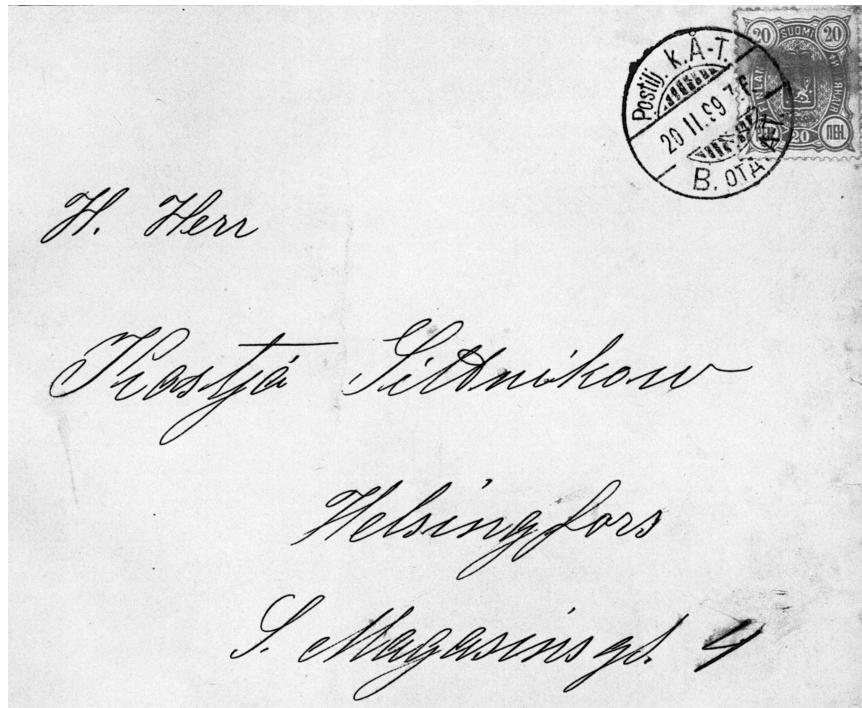 20 SUOMI 20
FINLAND
20 ПЕН.
Postilj. K.Å-T.
20 11.89 7 F
B. OTÅ. AT.
H. Herr
Kostjá Sittnikow
Helsingfors
S. Magasinsgt. 4